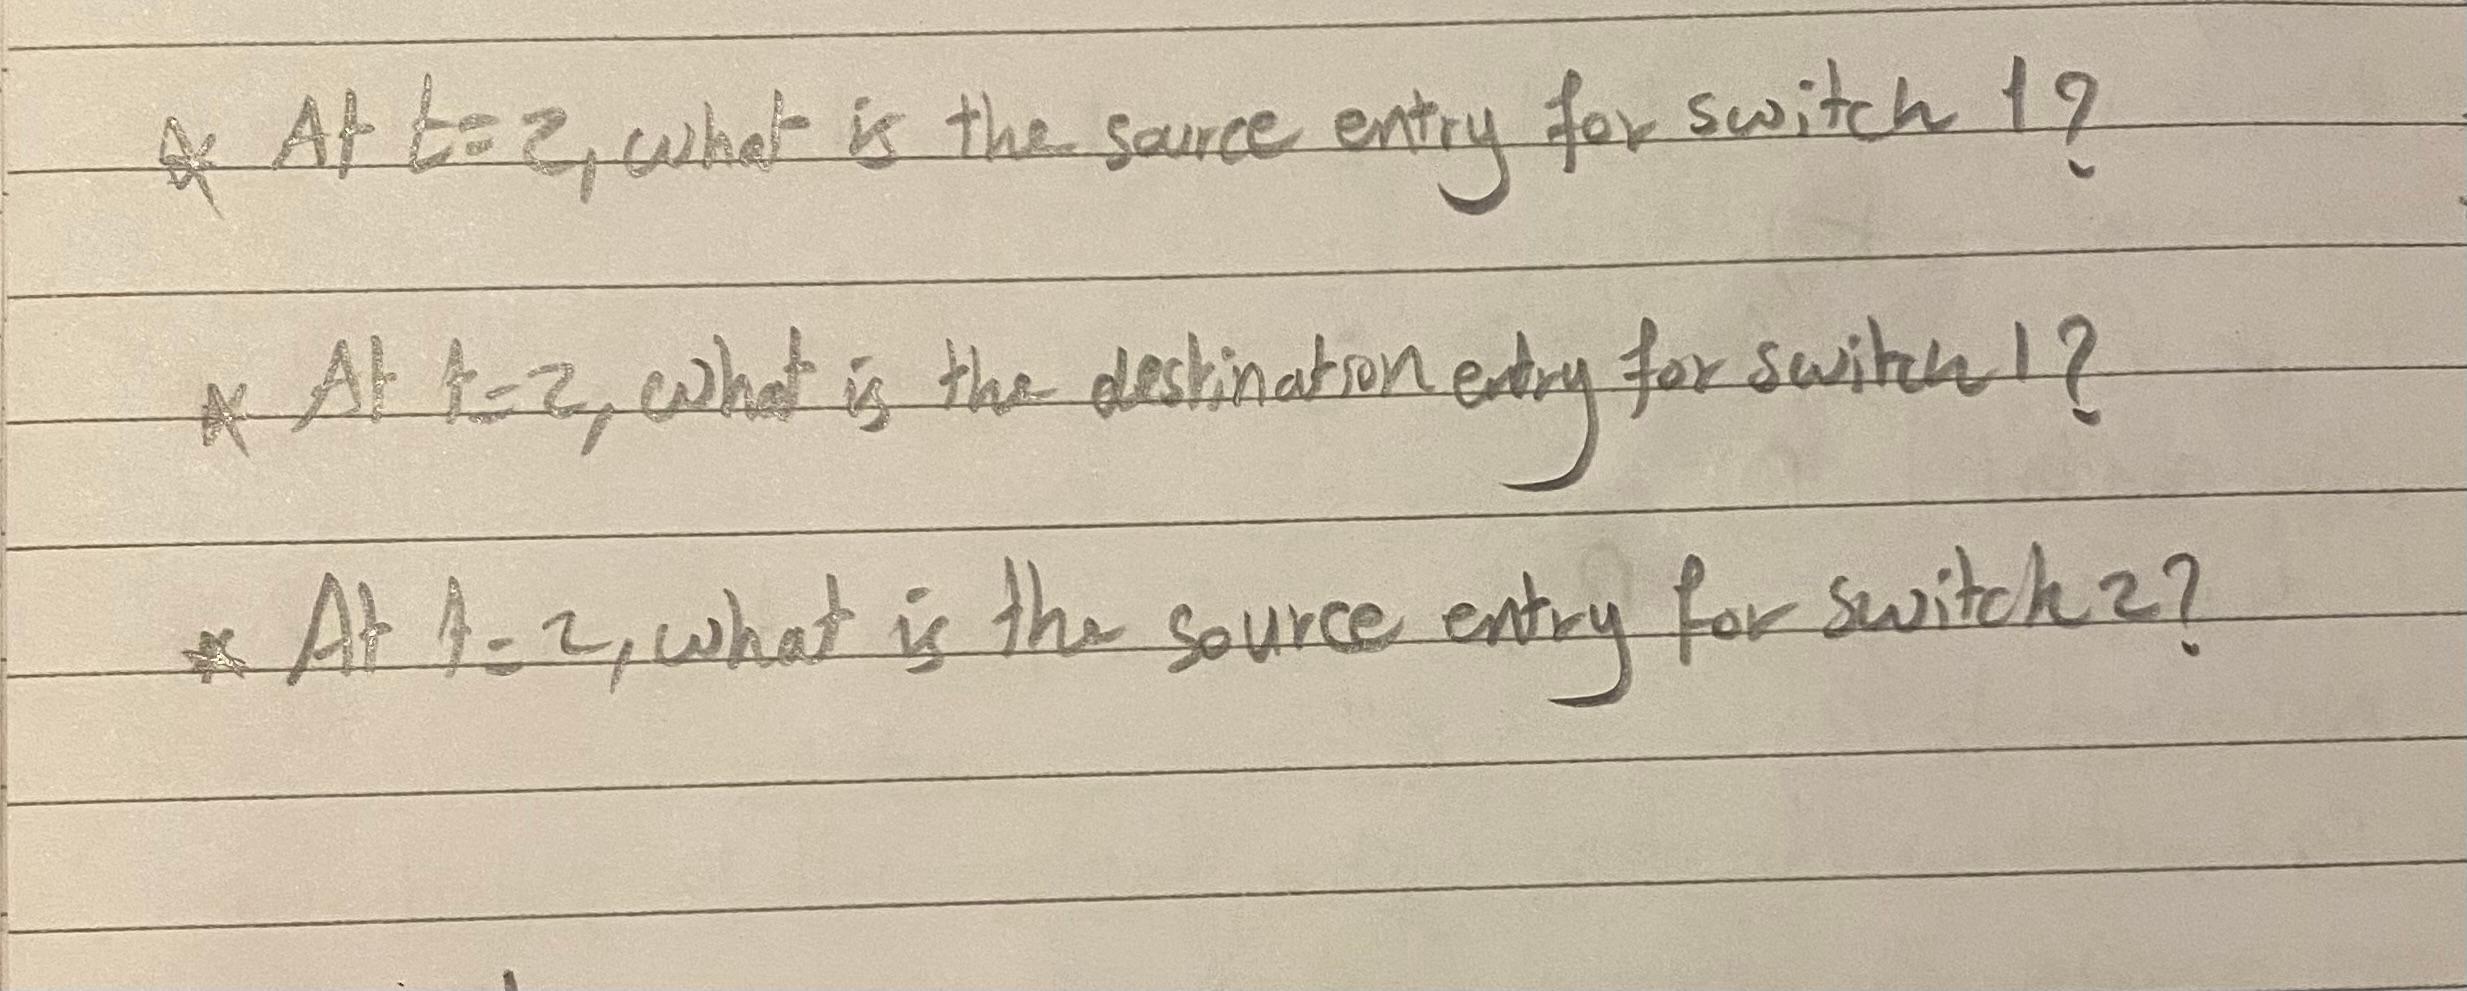 * At t=2, what is the source entry for switch 1?
* At t=2, what is the destination entry for switch 1?
* At t=2, what is the source entry for switch 2?